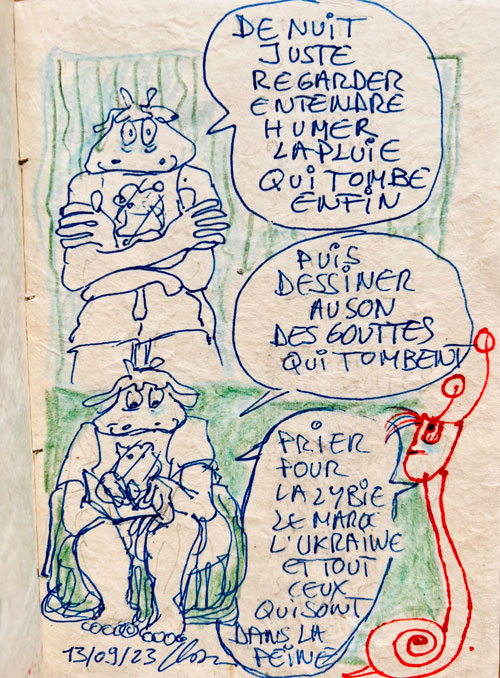 DE NUIT
JUSTE
REGARDER
ENTENDRE
HUMER
LA PLUIE
QUI TOMBE
ENFIN
PUIS
DESSINER
AU SON
DES GOUTTES
QUI TOMBENT
PRIER
POUR
LA LYBIE
LE MAROC
L'UKRAINE
ET TOUT
CEUX
QUI SONT
DANS LA
PEINE
13/09/23